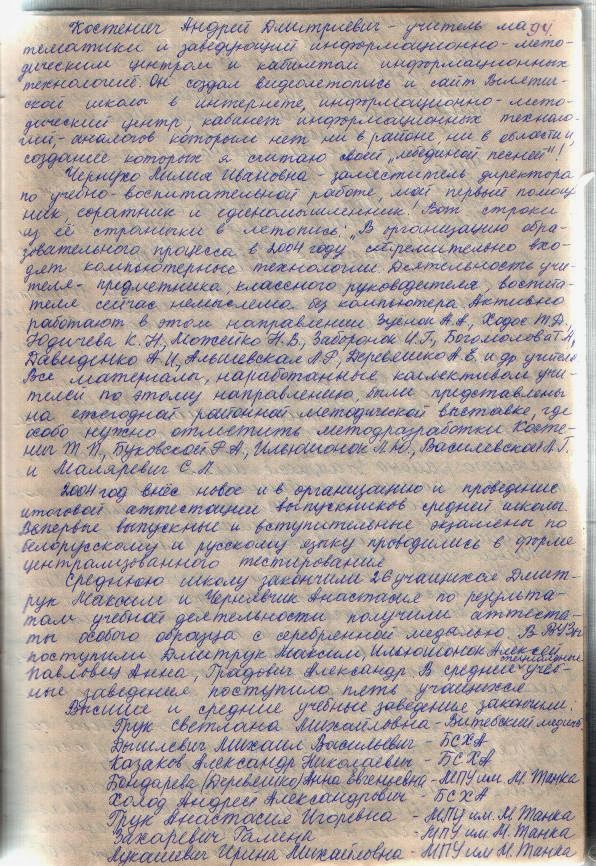 Костенич Андрей Дмитриевич - учитель ма-
тематики и заведующий информационно-мето-
дическим центром и кабинетом информационных
технологий. Он создал видеолетопись и сайт
ской школы в интернете, информационно-мето-
дический центр, кабинет информационных техноло-
гий - аналогов которым нет ни в районе, ни в области и
создание которых я считаю своей „лебединой песней"!
Чернухо Лилия Ивановна - заместитель директора
по учебно-воспитательной работе, мой первый помощ-
ник, соратник и единомышленник. Вот строки
из её странички в летопись: „В организацию обра-
зовательного процесса в 2004 году стремительно вхо-
дят компьютерные технологии. Деятельность учи-
теля-предметника, классного руководителя, воспита-
теля сейчас немыслема без компьютера. Активно
работают в этом направлении Зуёнок А.А., Ходос Т.Ф.,
Юдичева К.Н., Можейко Н.В., Заборонок И.Г., Богомолова Т.Н.,
Давиденко А.И., Альшевская Л.Р., Деревешко А.Е. и др. учителя
Все материалы, наработанные коллективом учи-
телей по этому направлению, были представлены
на ежегодной районной методической выставке, где
особо нужно отметить методразработки Косте-
нич Т.П., Буховской Р.А., Ильюшонок Л.Ю., Василевской Л.Г.
и Маляревич С.Л.
2004 год внёс новое и в организацию и проведение
итоговой аттестации выпускников средней школы.
Впервые выпускные и вступительные экзамены по
белорусскому и русскому языку проводились в форме
централизованного тестирования
Среднюю школу закончили 26 учащихся Дмит-
рук Максим и Чернявчик Анастасия по результа-
там учебной деятельности получили аттеста-
ты особого образца с серебренной медалью. В ВУЗы
поступили Дмитрук Максим, Ильюшонок Алексей,
Павловец Анна, Градович Александр. В средние специальные учеб-
ные заведения поступило пять учащихся
Высшие и средние учебные заведения закончили:
Грук Светлана Михайловна - Витебский мединст
Дышлевич Михаил Васильевич - БСХА
Казаков Александр Николаевич - БСХА
Бондарева (Деревешко) Анна Евгеньевна - МПУ им. М. Танка
Холод Андрей Александрович - БСХА
Грук Анастасия Игоревна - МПУ им. М. Танка
Захаревич Галина - МПУ им. М. Танка
Лукашевич Ирина Михайловна - МПУ им. М. Танка